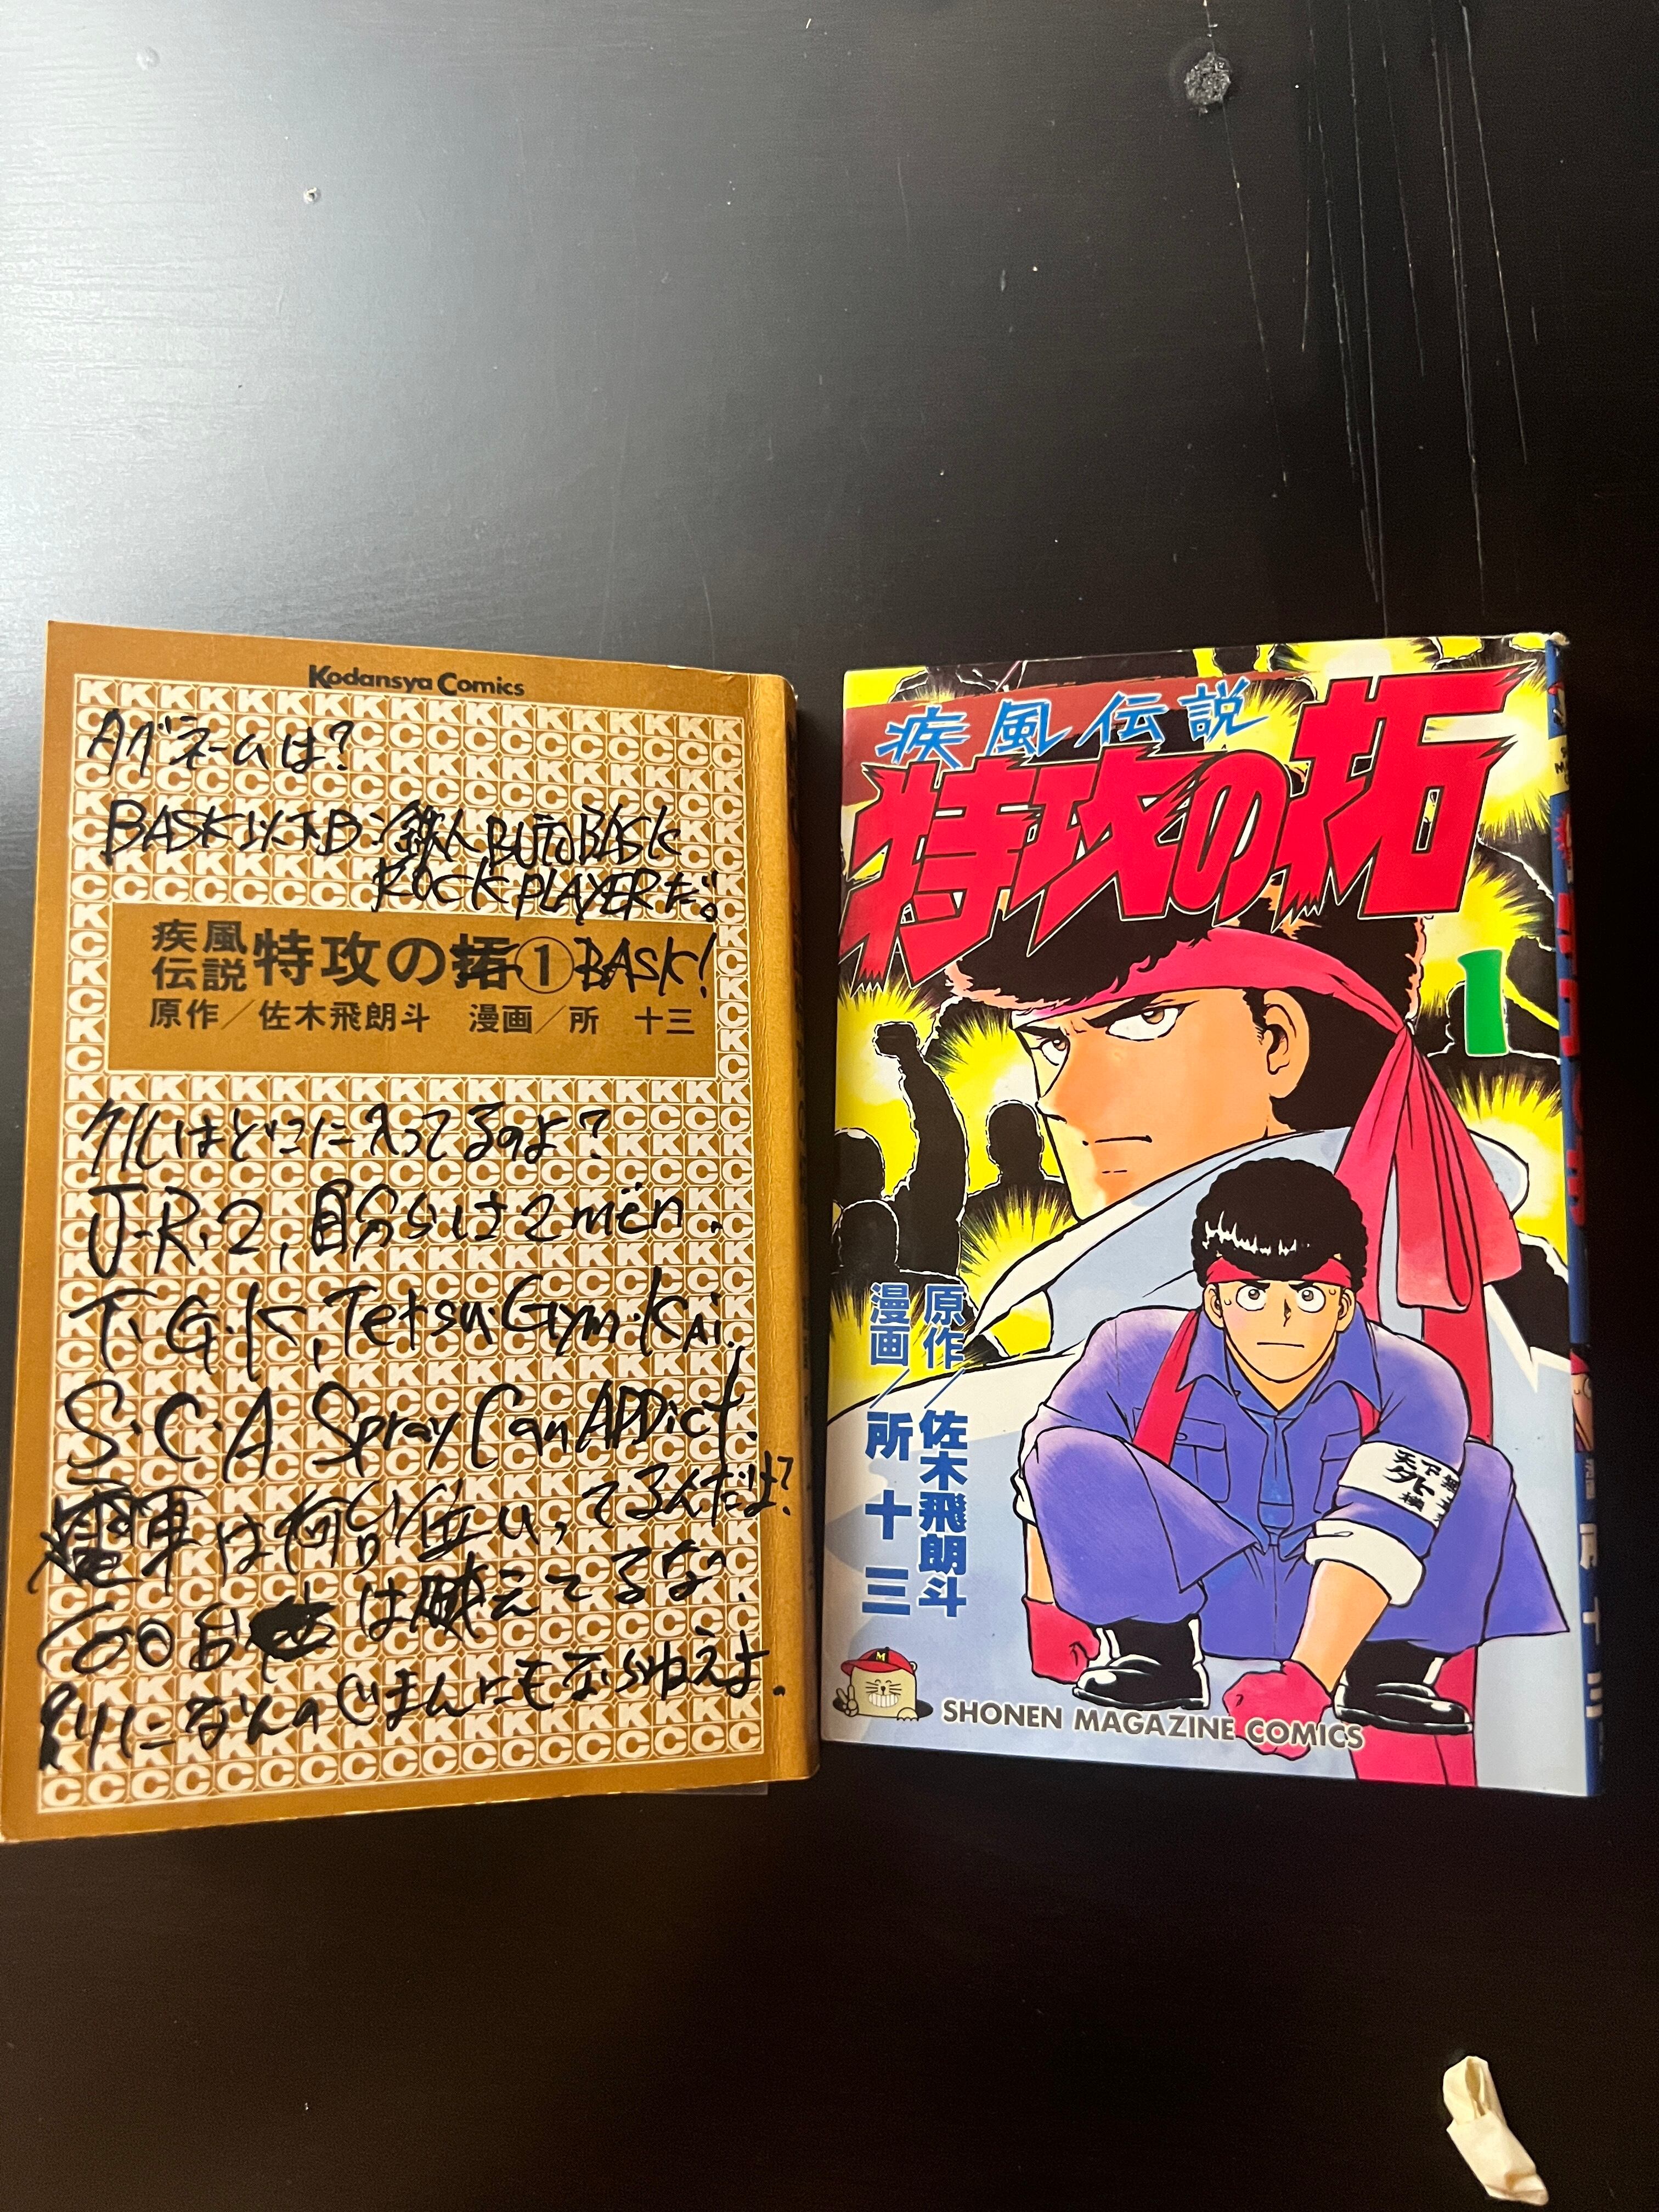 Kodansya Comics
タグネームは?
BASK以下B:鉄人BUTOBASK
ROCK PLAYERだ。
疾風
伝説 特攻の拓① BASK!
原作/佐木飛朗斗 漫画/所 十三
クルはどこに入ってるのよ?
J・R・2, 自分らは2mën.
T・G・K, Tetsu・Gym・Kai.
S・C・A Spray Can ADDict.
は何台位いってるんだよ?
は越えてるな.
別になんのじまんにもならねえよ.
疾風伝説
特攻の拓
1
原作/佐木飛朗斗
漫画/所 十三
M
SHONEN MAGAZINE COMICS